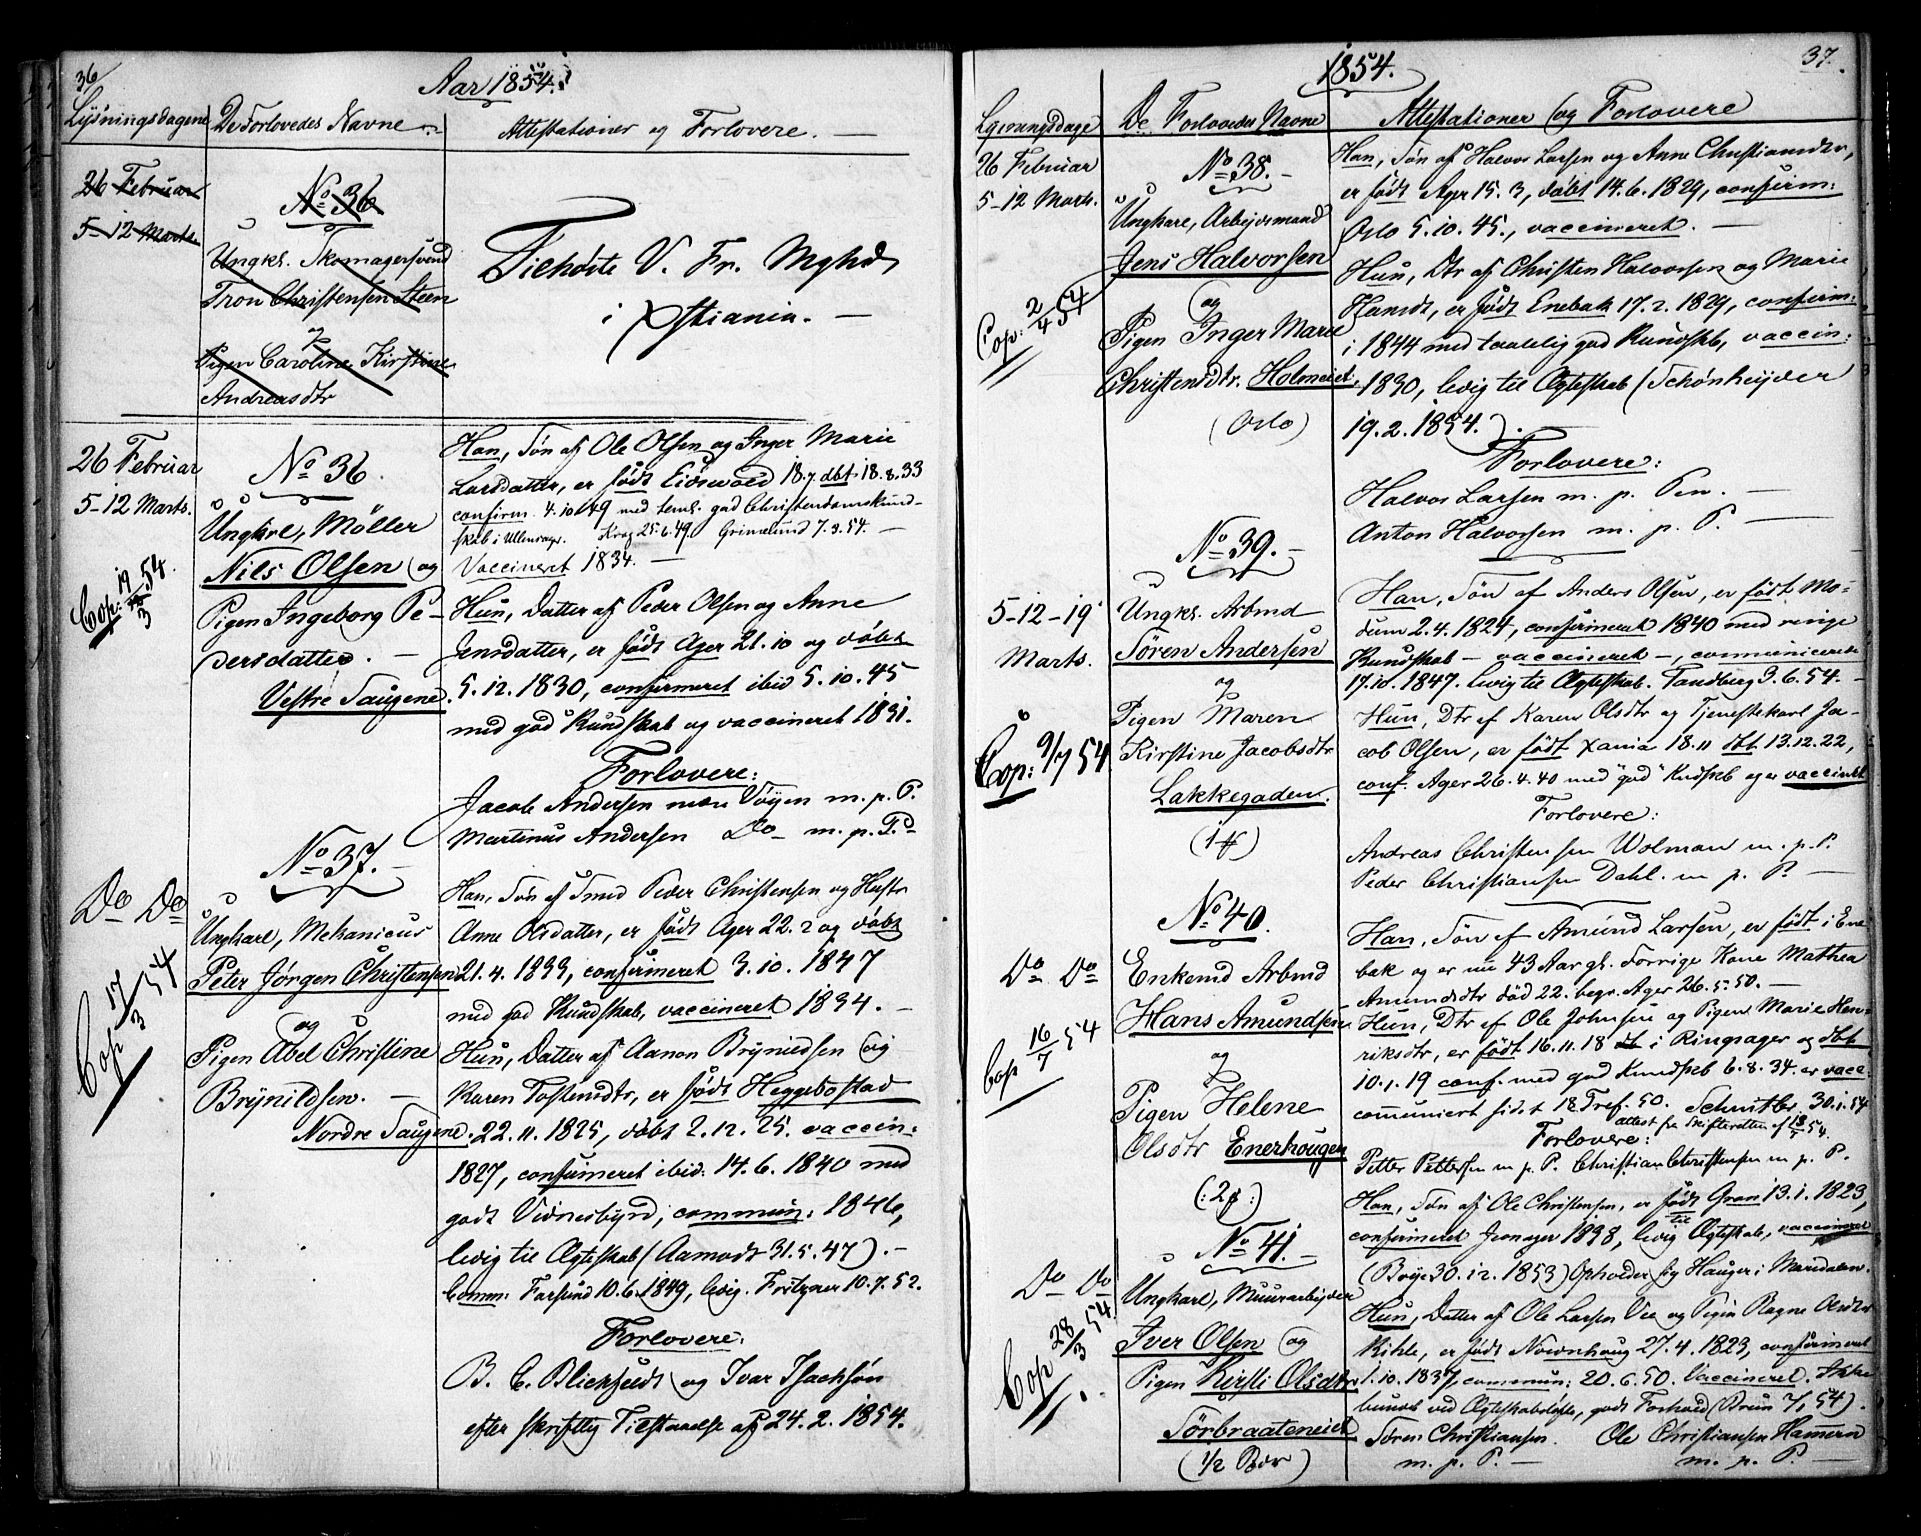 36
Aar 1854.
Lysningsdagene
De Forlovedes Navne
Attestationer og Forlovere. —
26 Februar
5-12 Marts
No 36
Ungkl. Skomagersvend
Tron Christensen Steen
og
Pigen Caroline Kirstine
Andreasdtr
Tilhørte V. Fr. Mghd
i Xstiania. —
26 Februar
5-12 Marts.
Cop: 19/3 54.
No 36.
Ungkrl, Møller
Nils Olsen og
Pigen Ingeborg Pe-
dersdatter. —
Vestre Saugene.
Han, Søn af Ole Olsen og Inger Marie
Larsdatter, er født Eidsvold 18.7 dbt. 18.8.33
confirm. 4.10.49 med teml. god Christendomskund-
skab i Ullensager. Krag 25.6.49. Grimelund 7.3.54. —
Vaccineret 1834. —
Hun, Datter af Peder Olsen og Anne
Jensdatter, er født Ager 21.10 og døbt
5.12.1830, confirmeret ibid 5.10.45
med god Kundskab og vaccineret 1831.
Forlovere:
Jacob Andersen nære Vøyen m.p.P.
Martinus Andersen Do m.p.P.
Do Do
Cop 17/3 54
No 37. —
Ungkarl, Mekanicus
Peter Jørgen Christensen
og
Pigen Abel Christine
Brynildsen. —
Nordre Saugene.
Han, Søn af Smed Peder Christensen og Hustr
Anne Olsdatter, er født Ager 22.2 og døbt
21.4.1833, confirmeret 3.10.1847
med god Kundskab, vaccineret 1834. —
Hun, Datter af Aanon Brynildsen og
Karen Tostensdtr, er født Heggebostad
22.11.1825, døbt 2.12.25. vaccin:
1827, confirmeret ibid: 14.6.1840 med
godt Vidnesbyrd, commun: 1846,
ledig til Ægteskab (Aamodt 31.5.47). —
Comm: Farsund 10.6.1849, ledig. Fritzner 10.7.52.
Forlovere:
B. E. Blichfeldt og Ivar Isachsøn
efter skriftlig Tilstaaelse af 24.2.1854.
37.
1854.
Lysningsdage
De Forlovedes Navne
Attestationer og Forlovere
26 Februar
5-12 Marts.
Cop: 2/4 54
No 38. —
Ungkarl, Arbejdsmand
Jens Halvorsen
og
Pigen Inger Marie
Christensdtr. Holmeiet.
(Oslo)
Han, Søn af Halvor Larsen og Anne Christiansdtr,
er født Ager 15.3, døbt 14.6.1829, confirm:
Oslo 5.10.45., vaccineret. —
Hun, Dtr af Christen Halvorsen og Marie
Hansdt, er født Enebak 17.2.1829, confirm:
i 1844 med taalelig god Kundskb, vaccin:
1830, ledig til Ægteskab (Schønheyder
19.2.1854.)
Forlovere:
Halvor Larsen m.p. Pen. —
Anton Halvorsen m.p.P. —
5-12-19
Marts.
Cop: 9/7 54
No 39. —
Ungkl. Arbmd
Søren Andersen
og
Pigen Maren
Kirstine Jacobsdtr
Lakkegaden.
Han, Søn af Anders Olsen, er født Mo-
dum 2.4.1824, confirmeret 1840 med ringe
Kundskab — vaccineret —, communiceret
17.10.1847. ledig til Ægteskab. Tandberg 3.6.54. —
Hun, Dtr af Karen Olsdtr og Tjenestekarl Ja-
cob Olsen, er født Xania 18.11 dbt. 13.12.22,
conf. Ager 26.4.40 med "god" Kndskb og er vaccinert
Forlovere:
Andreas Christensen Wolman m.p.P.
Peder Christiansen Dahl. m.p.P. —
Do Do
Cop 16/7 54
No 40.
Enkemd Arbmd
Hans Amundsen
og
Pigen Helene
Olsdtr Enerhougen
Han, Søn af Amund Larsen, er født i Ene
bak og er nu 43 Aar gl. Forrige Kone Mathea
Amundsdtr død 22. begr. Ager 26.5.50. —
Hun, Dtr af Ole Johnsen og Pigen Marie Hen-
riksdtr, er født 16.11.18 i Ringsager og dbt
10.1.19 conf. med god Kundskb 6.8.34. er vacc.
communicert sidst 18 Tref. 50. Schnitler 30.1.54
attest fra Skifteretten af
Forlovere:
Petter Pettersen m.p.P. Christian Christensen m.p.P.
Do Do
Cop 28/3 54
No 41. —
Ungkarl, Muurarbejder
Iver Olsen og
Pigen Kirsti Olsdtr
Sørbraateneiet
(1/2 Pdr)
Han, Søn af Ole Christensen, er født Gran 13.1.1823,
confirmeret Jevnager 1838, ledig til Ægteskab, vaccineret
(Bøye 30.12.1853) Opholder sig Hauger i Maridalen.
Hun, Datter af Ole Larsen Vee og Pigen Ragne Olsdtr
Kihle, er født Nordrehoug 27.4.1823, confirmeret
1.10.1837, commun: 20.6.50. Vaccineret. Ikke
bunden ved Ægteskabsløfte, godt Forhold (Bruun 7/1 54).
Søren Christiansen. Ole Christiansen Hamern
m.p.P. — m.p.P. —